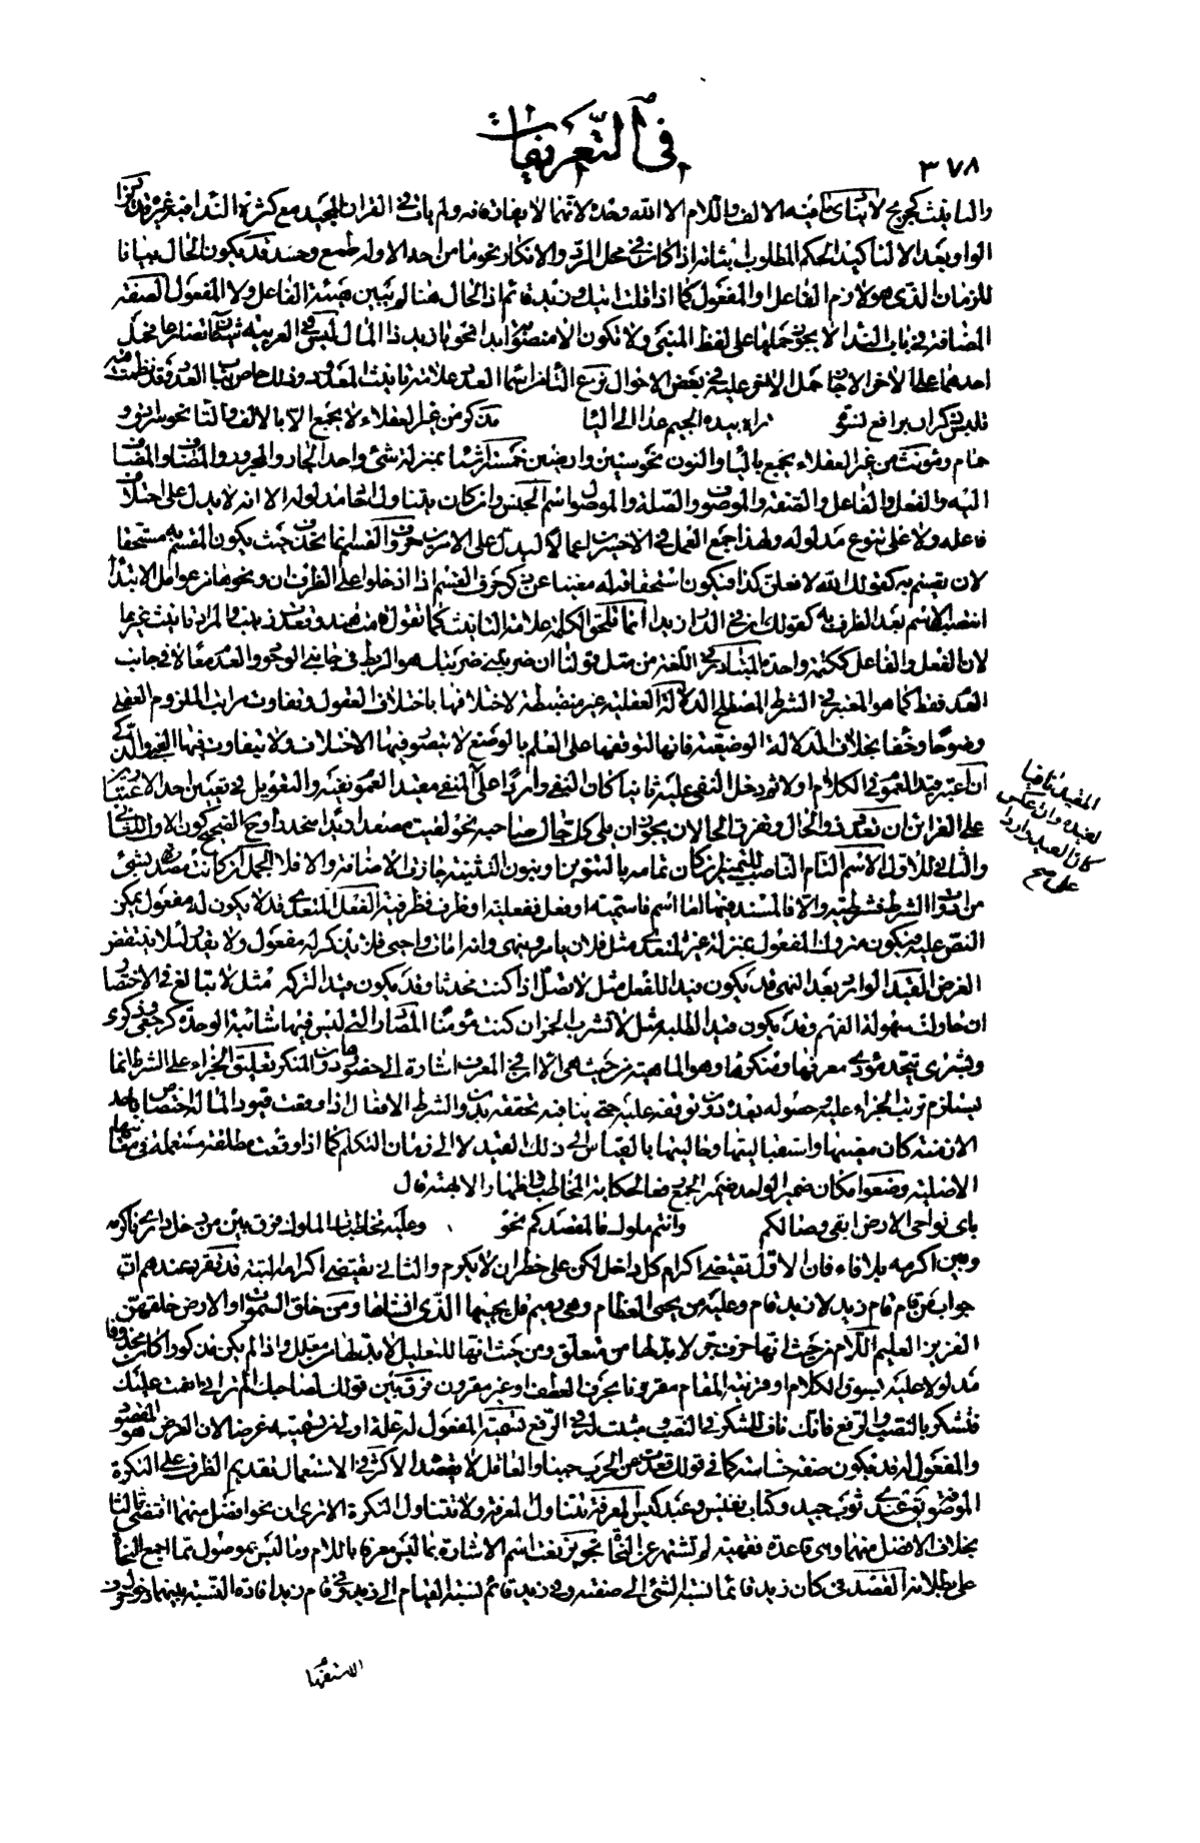 في التعريفات
٣٧٨
والتأنيث كجريح لا ينادى ما فيه الالف واللام الا الله وحده لانهما لا يفارقانه ولم يأت في القران المجيد مع كثرة النداء فيه غيره قد تزاد
الواو بعد الا لتأكيد الحكم المطلوب اثباته اذا كان في محل الرد والانكار نحو ما من احد الا وله طمع وحسد قد يكون الحال بيانا
للزمان الذي هو لازم الفاعل او المفعول كما اذا قلت اتيك وزيد قائم اذ الحال هنا لم يبين هيئة الفاعل ولا المفعول الصفة
المضافة في باب النداء لا يجوز حملها على لفظ المبنى ولا تكون الا منصوبة ابدا نحو يا زيد ذا المال ليس في العربية شيئان تضارعا فحمل
احدهما على الاخر الا جاز حمل الاخر عليه في بعض الاحوال نزع التاء من اسماء العدد علامة تأنيث المعدود وذلك خاص بباب العدد وقد نظمت فيه
مذكر من غير العقلاء لا يجمع الا بالالف والتاء نحو سرادق و
حمام ومونث من غير العقلاء يجمع بالياء والنون نحو سنين وارضين خمسة اشياء بمنزلة شئ واحد الجار والمجرور والمضاف والمضاف
اليه والفعل والفاعل والصفة والموصوف والصلة والموصول اسم الجنس وان كان يتناول احاد مدلوله الا انه لا يدل على اختلاف
فاعله ولا على تنوع مدلوله ولهذا جمع العمل في الاخسرين اعمالا ليدل على الامرين حروف القسم انما تحذف حيث يكون المقسم به مستحقا
لان يقسم به كقولك الله لافعلن كذا فيكون استحقاقه له مغنيا عن ذكر حرف القسم اذا دخلوا على الظرف ان ونحوها من عوامل الابتداء
انتصب الاسم بعد الظرف به كقولك ان في الدار زيدا انما تلحق الكلمة علامة التأنيث كما تقول قامت هند وقعدت زينب والمراد تأنيث غيرها
لان الفعل والفاعل ككلمة واحدة المتبادر في اللغة من مثل قولنا ان ضربتني ضربتك هو الربط في جانبي الوجود والعدم معا لا في جانب
العدم فقط كما هو المعتبر في الشرط المصطلح الدلالة العقلية غير منضبطة لاختلافها باختلاف العقول وتفاوت مراتب اللزوم العقلي
وضوحا وخفاء بخلاف الدلالة الوضعية فانها لتوقفها على العلم بالوضع لا يتصور فيها الاختلاف ولا يتفاوت فيها القوي والذكي
ان اعتبر قيد العموم في الكلام اولا ثم دخل النفي عليه ثانيا كان النفي واردا على المنفي مفيد العموم نفيه والتعويل في تعيين احد الاعتبارين
على القرائن ان تعدد ذو الحال وتفرق الحالان يجوز ان يلي كل حال صاحبه نحو لقيت مصعدا زيدا منحدرا ويح الصحيح كون الاول للثاني
والثاني للاول الاسم التام الناصب للتمييز ان كان تمامه بالتنوين او بنون التثنية جازت الاضافة والا فلا الجملة ان كانت مصدرة بشئ
من ادوات الشرط فشرطية والا فالمسند فيها اما اسم فاسمية او فعل ففعلية او ظرف فظرفية الفعل المتعدي قد لا يكون له مفعول يمكن
النص عليه فيكون متروك المفعول بمنزلة غير المتعدي مثل فلان يامر وينهى وانه امات واحيى فلا يذكر له مفعول ولا يقدر لئلا ينتقض
الغرض القيد الوارد بعد النهي قد يكون قيدا للفعل مثل لا تصل اذا كنت محدثا وقد يكون قيدا لتركه مثل لا تبالغ في الاختصار
ان حاولت سهولة الفهم وقد يكون قيدا لطلبه مثل لا تشرب الخمر ان كنت مؤمنا المصادر التي ليس فيها شائبة الوحدة كرجعى وذكرى
وبشرى يتحد مؤدى معرفها ومنكرها وهو الماهية من حيث هي الا ان في المعرف اشارة الى حضورها دون المنكر تعليق الجزاء على الشرط انما
يستلزم ترتب الجزاء عليه وحصوله بعده دون توقفه عليه حتى ينافيه تحققه بدون الشرط الافعال اذا وقعت قيود المالة اختصاص باحد
الازمنة كان مضيها واستقباليتها وحاليتها بالقياس الى ذلك القيد لا الى زمان التكلم كما اذا وقعت مطلقة مستعملة في معانيها
الاصلية وضعوا مكان ضمير الواحد ضمير الجمع رفعا لحكاية المخاطب واظهارا لابهته قال
باي نواحي الارض ابغي وصالكم وانتم ملوك ما لمقصدكم نحو وعليه مخاطبات الملوك فرق بين من يدخل داري فاكرمه
وبين اكرمه بلا فاء فان الاول يقتضي اكرام كل داخل لكن على خطر ان لا يكرم والثاني يقتضي اكرامه البتة قد تقرر عندهم ان
جواب من قام قام زيد لا زيد قام وعليه من يحيى العظام وهي رميم قل يحييها الذي انشأها ومن خلق السموات والارض خلقهن
العزيز العليم اللام من حيث انها حرف جر لا بد لها من متعلق ومن حيث انها للتعليل لا بد لها من معلل واذا لم يكن مذكورا كان محذوفا
مدلولا عليه بسوق الكلام او قرينة المقام مقرونا بحرف العطف او غير مقرون فرق بين قولك لصاحبك الم تر اني انعمت عليك
فتشكر بالنصب والرفع فانك ناف للشكر في النصب ومثبت له في الرفع تسمية المفعول له علة اولى من تسميته غرضا لان الغرض هو المقصود
والمفعول له قد يكون صفة خساسة كما في قولك قعدت من الحرب جبنا والعاقل لا يقصده الاكثر في الاستعمال تقديم الظرف على النكرة
الموصوفة نحو عندي ثوب جيد وكتاب نفيس وعبد كيس المعرفة تتناول المعرفة ولا تتناول النكرة الا ترى ان نحو افضل منهما اقتضى ثالثا
بخلاف الافضل منهما وهي قاعدة فقهية لم تشتهر عن النحاة تجويز نعت اسم الاشارة بما ليس معرفا باللام وما ليس بموصول مما اجمع النحاة
على بطلانه القصد في كان زيد قائما نسبة الشئ الى صفته وفي زيد قائم نسبة القيام الى زيد وفي قام زيد افادة النسبة بينهما دخول حرف
المفيد ثانيا
لقيده وان عكس
كان القيد واردا
على صح
الاستفهام